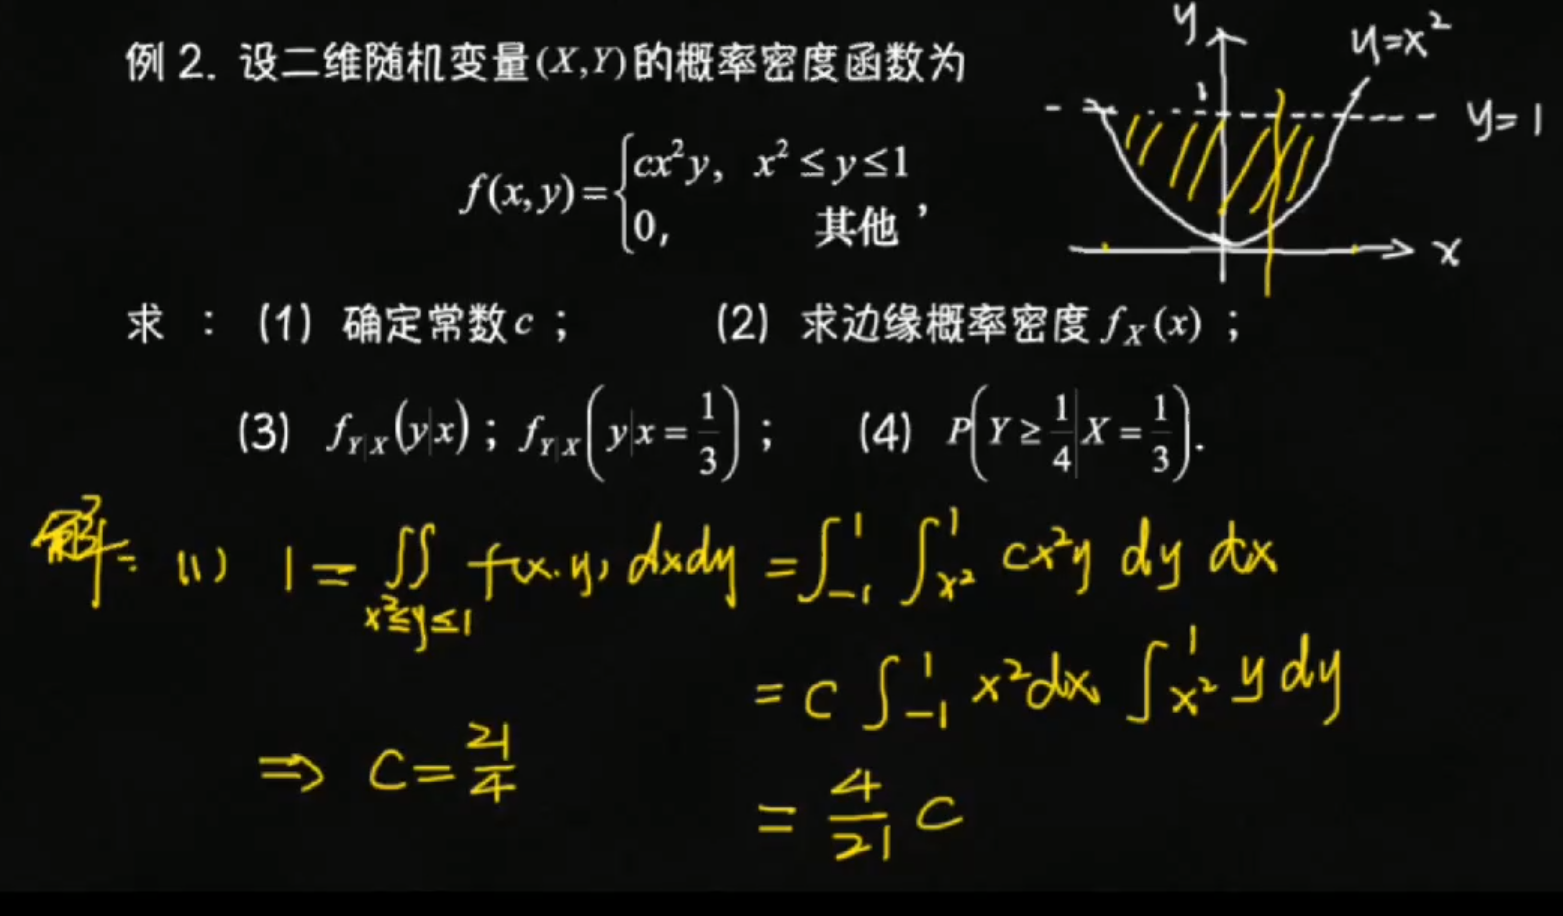 例2. 设二维随机变量(X,Y)的概率密度函数为
f(x,y)={cx²y, x²≤y≤1
0, 其他 ,
求 : (1) 确定常数c ; (2) 求边缘概率密度 f_X(x) ;
(3) f_{Y|X}(y|x) ; f_{Y|X}(y|x=1/3) ; (4) P(Y≥1/4|X=1/3).
y
y=x²
1
y=1
x
解: (1) 1=∬_{x²≤y≤1} f(x.y) dxdy =∫_{-1}^{1} ∫_{x²}^{1} cx²y dy dx
= c ∫_{-1}^{1} x²dx ∫_{x²}^{1} y dy
⇒ c=21/4
= 4/21 c